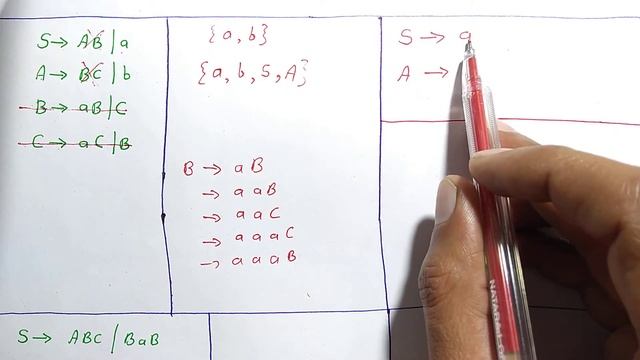 S → AB | a
A → BC | b
B → aB | C
C → aC | B
{a, b}
{a, b, S, A}
B → aB
→ aaB
→ aaC
→ aaaC
→ aaaB
S → a
A →
S → ABC | BaB
NATARAJ